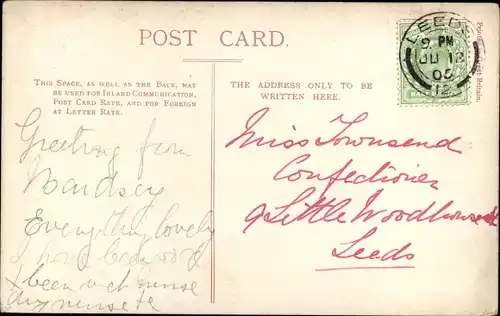 POST CARD.
THIS SPACE, AS WELL AS THE BACK, MAY
BE USED FOR INLAND COMMUNICATION,
POST CARD RATE, AND FOR FOREIGN
AT LETTER RATE.
THE ADDRESS ONLY TO BE
WRITTEN HERE.
LEEDS
9 PM
JU 12
05
12
Greeting from
Bardsey
Everything lovely
I have been
& been
Miss Townsend
Confectioner
9 Little Woodhouse St
Leeds